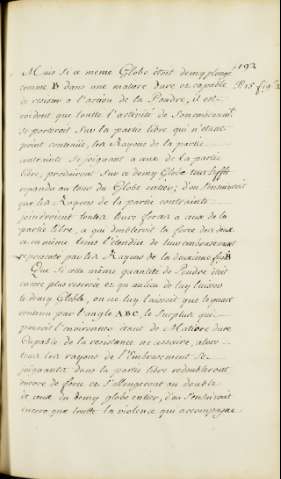 193
Mais si ce même Globe étoit demy plongé
comme B dans une matiere dure et capable
Pl. 15 fig. 2
de resister a l'action de la Poudre, il est
evident que toutte l'activité de son embrasemt.
se porteroit sur la partie libre qui n'étant
point contenüe, les Rayons de la partie
contrainte se joignant a ceux de la partie
libre, produiroient sur ce demy Globe tout l'effet
repandu au tour du Globe entier; d'ou s'ensuivroit
que les Rayons de la partie contrainte
joindroient toutes leurs forces a ceux de la
partie libre, ce qui doubleroit la force des deux
et en même tems l'étendüe de leur embrasement
representé par les Rayons de la deuxieme fig. B
Que si cette même quantité de Poudre étoit
encore plus resserée et qu'au lieu de luy laisser
le demy Globe, on ne luy laissoit que le quart
contenu par l'angle ABC, le surplus qui
prenoit l'environnée étant de Matiere dure
Capable de la resistance necessaire, alors
tous les rayons de l'Embrasement se
joignants dans la partie libre redoubleront
encore de force et s'allongeront au double
de ceux du demy globe entier, d'ou s'ensuivroit
encore que toutte la violence qui accompagne